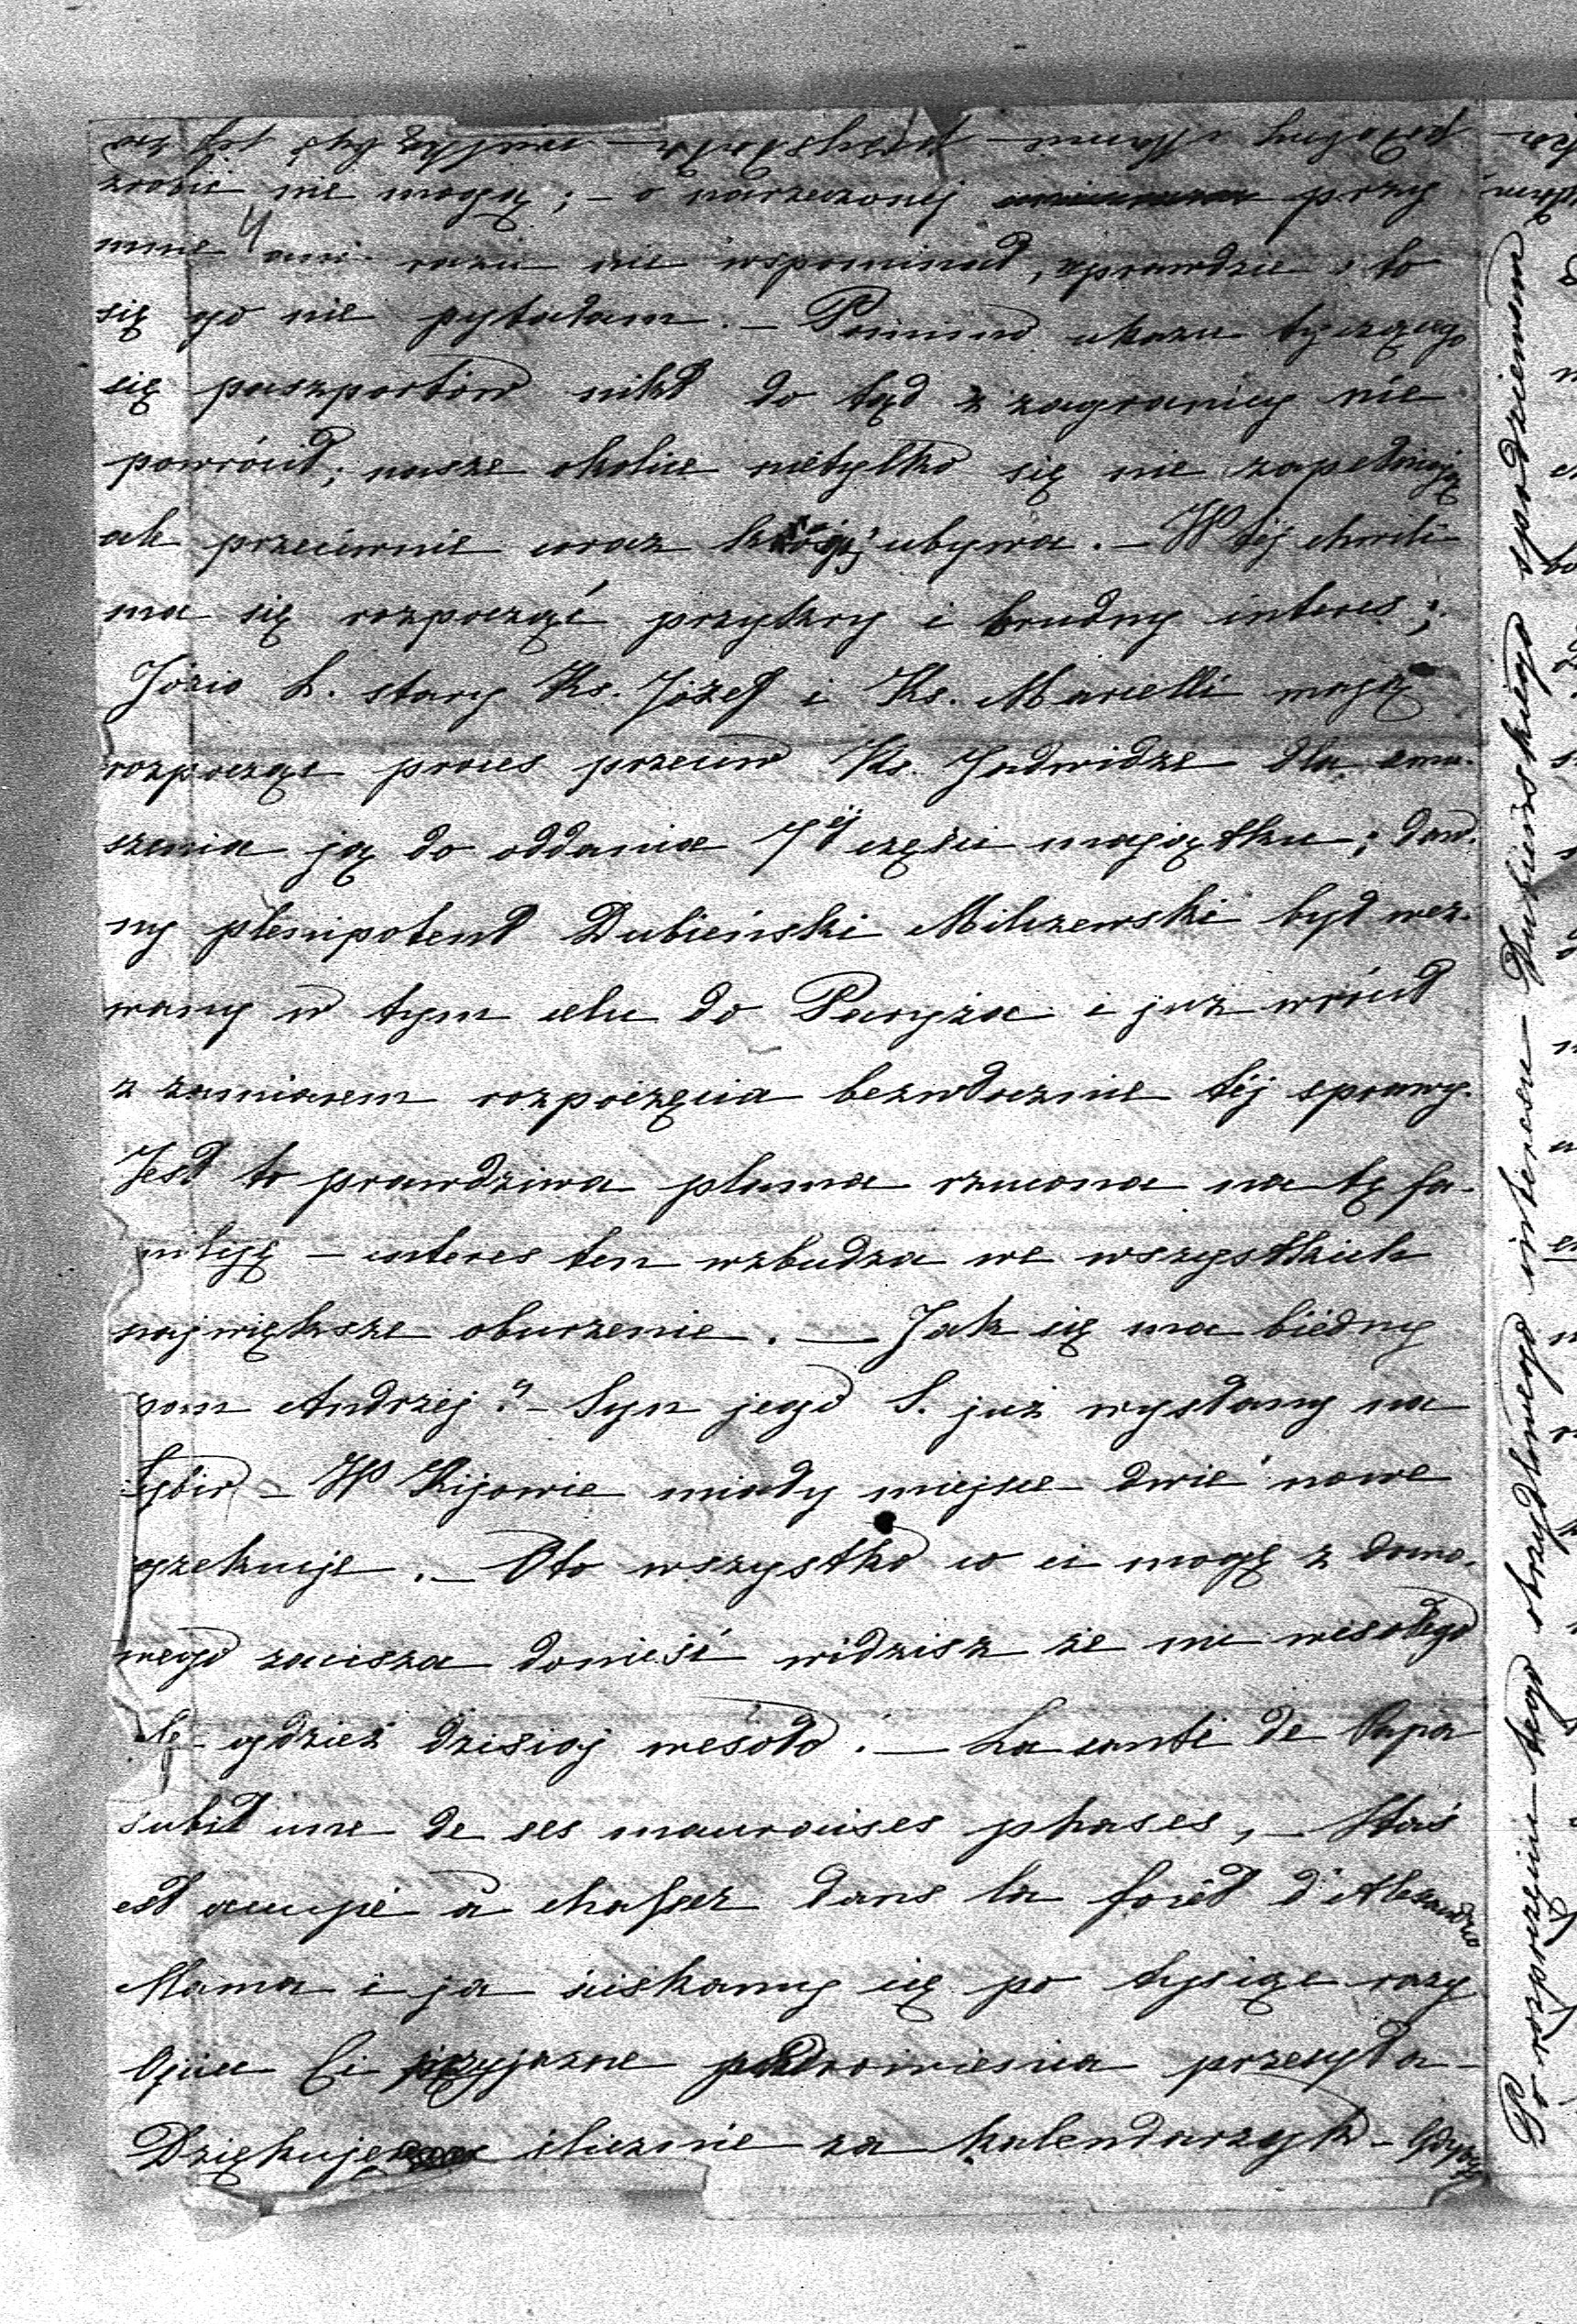 zrazić nie mogą; – o narzeczonej przy
mnie ani razu nie wspominał, wprawdzie i to
się go nie pytałam. – Pomimo ukazu tyczącego
się paszportów nikt do tąd z zagranicy nie
powrócił; nasze okolice nietylko się nie zapełniają
ale przeciwnie coraz ubywa. – W téj chwili
ma się rozpocząć przykry i brudny interes;
Józio L. stary Ks. Józef i Ks. Marcelli mają
rozpocząc proces przeciw Ks. Jadwidze dla zmu-
szenia ją do oddania 7éj części majątku; daw-
ny plenipotent Dubieński Milczewski był wez-
wany w tym celu do Paryża i juz wrócił
z zamiarem rozpoczęcia bezwłocznie téj sprawy.
Jest to prawdziwa plama rzucona na tę fa-
milyę – interes ten wzbudza we wszystkich
największe oburzenie. — Jak się ma biédny
pan Andrzéj? – Syn jego S. już wysłany na
Sybir – W Kijowie miały miejsce dwie nowe
egzekucje. – Oto wszystko co ci mogę z domo-
wego zacisza donieść widzisz że nic wesołego
ale gdzież dzisiaj wesoło. — La santé de Papa
subit une de ses mauvaises phases, – Staś
est occupé à chasser dans la forêt d'Alexandro
Mama i ja ściskamy cię po tysiące razy
Ojciec Ci przyjazne pozdrowienia przesyła –
Dziękuję ślicznie za kalendarzyk – Gdyby
Po rozpoczęciu tego obrzydliwego interesu – Dubieńskiego spodziewam